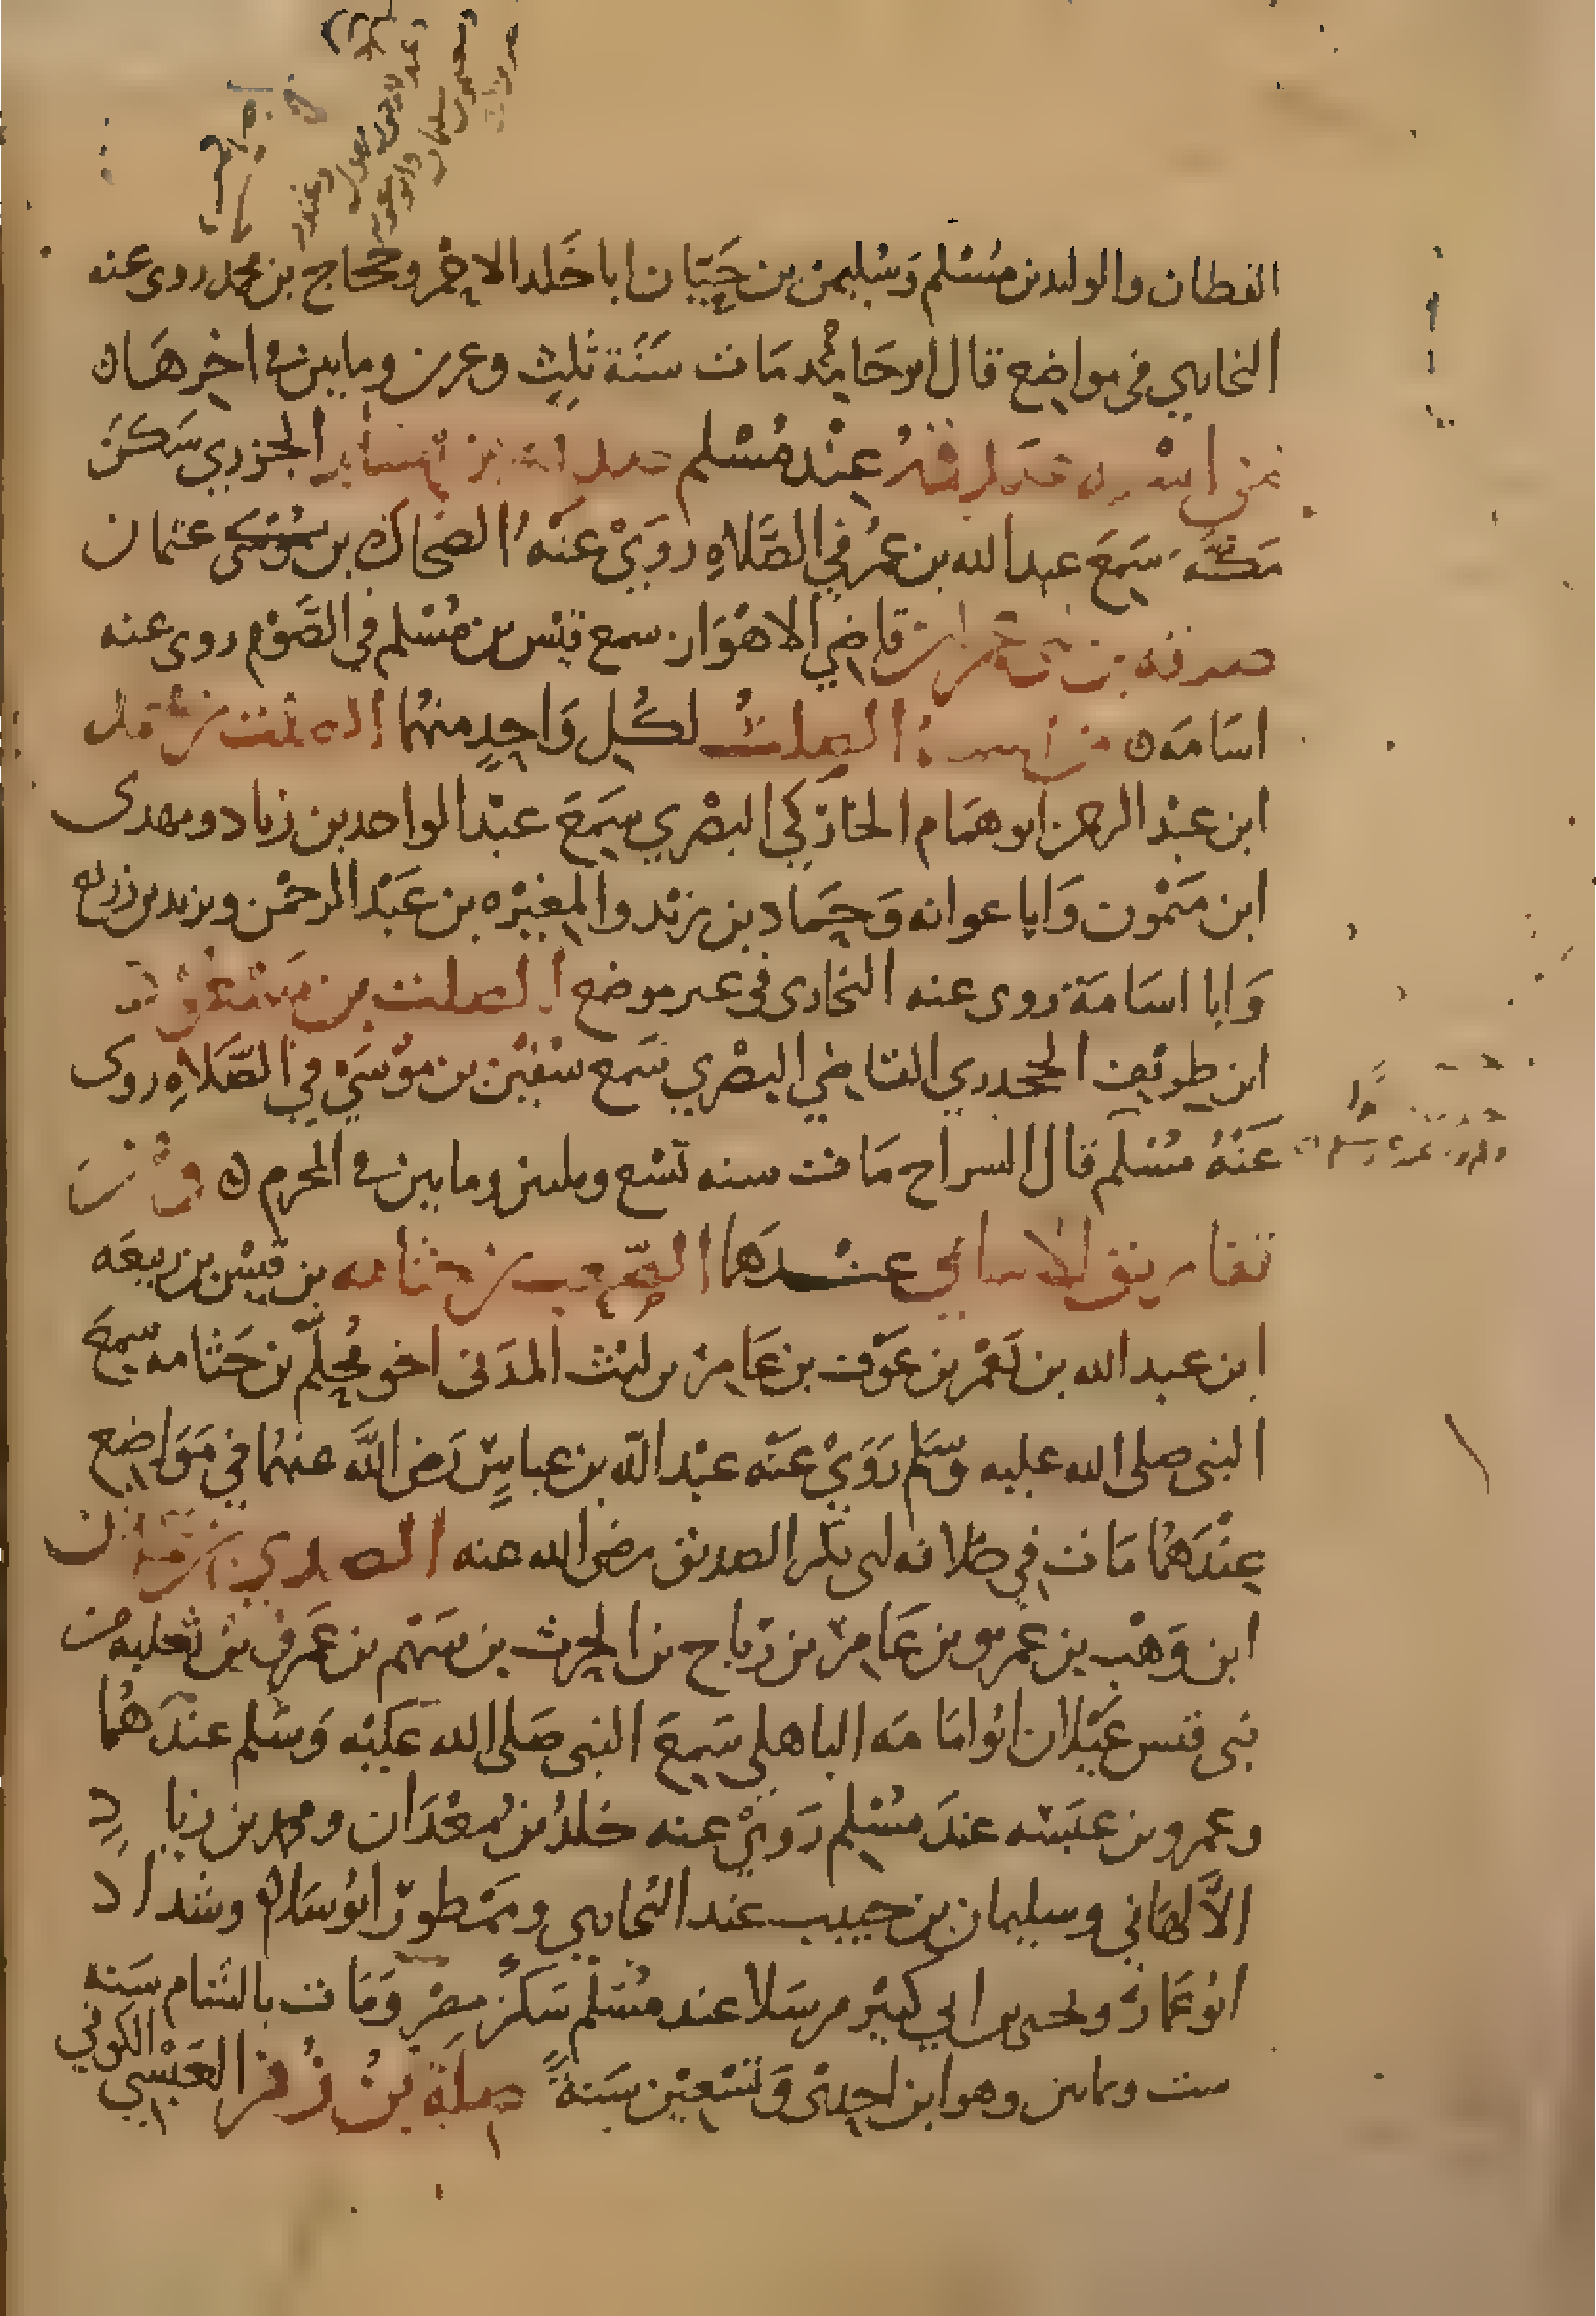 القطان والوليد بن مسلم وسليمن بن حيان ابا خلد الاحمر وحجاج بن محمد روى عنه
البخاري في مواضع قال ابو حاتم مات سنة ثلث وعشرين ومايتين او اخرها
من اسمه صدقة عند مسلم صدقة بن يسار الجزري سكن
مكة سمع عبد الله بن عمر في الصلاه روى عنه الضحاك بن عثمان
صدقه بن قاضي الاهواز سمع قيس بن مسلم في الصوم روى عنه
اسامه من اسمه الصلت لكل واحد منهما الصلت بن محمد
ابن عبد الرحمن ابو همام الخاركي البصري سمع عبد الواحد بن زياد ومهدى
ابن ميمون وابا عوانه وحماد بن زيد والمغيره بن عبد الرحمن ويزيد بن زريع
وابا اسامة روى عنه البخاري في غير موضع الصلت بن مسعود
ابن طريف الجحدري القاضي البصري سمع سفين بن موسى في الصلاه روى
عنه مسلم قال السراج مات سنه تسع وثلثين ومايتين في المحرم ومن
تفاريق الاسامي عندهما الصعب بن جثامه بن قيس بن ربيعه
ابن عبد الله بن يعمر بن عوف بن عامر بن ليث المدني اخو محلم بن جثامه سمع
النبي صلى الله عليه وسلم روى عنه عبد الله بن عباس رضي الله عنهما في مواضع
عندهما مات في خلافه ابي بكر الصديق رضي الله عنه الصدي بن عجلان
ابن وهب بن عمرو بن عامر بن رباح بن الحرث بن سهم بن عمرو بن ثعلبه من
بني قيس عيلان ابو امامه الباهلي سمع النبي صلى الله عليه وسلم عندهما
وعمرو بن عبسه عند مسلم روى عنه خلد بن معدان ومحمد بن زياد
الالهاني وسليمان بن حبيب عند البخاري وممطور ابو سلام وشداد
ابو عمار ويحيى بن ابي كثير مرسلا عند مسلم سكن مصر ومات بالشام سنه
ست وثمانين وهو ابن احدى وتسعين سنة صلة بن زفر العبسي الكوفي